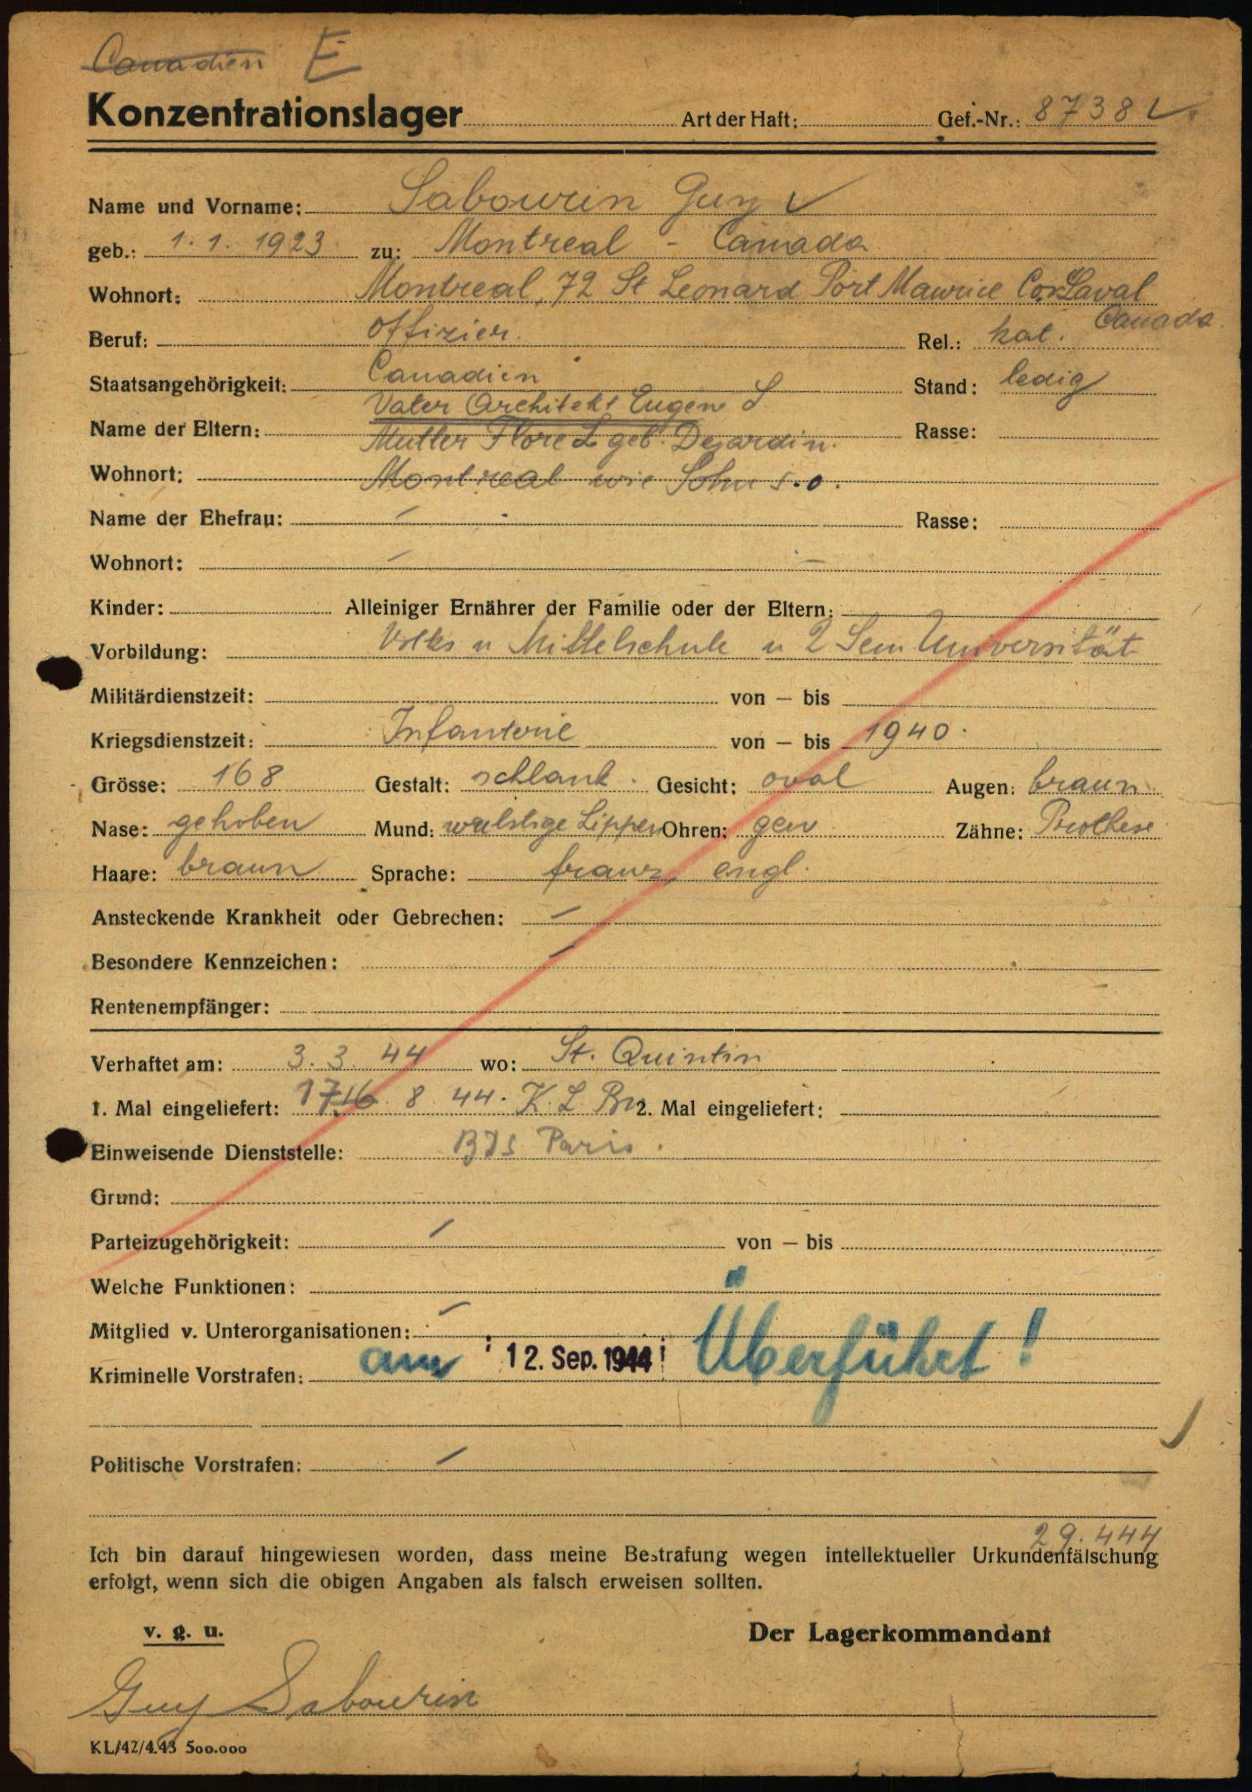 Canadien E
Konzentrationslager Art der Haft: Gef.-Nr.: 8738
Name und Vorname: Sabourin Guy
geb.: 1.1.1923 zu: Montreal - Canada
Wohnort: Montreal, 72 St Leonard Port Maurice Laval
Canada
Beruf: Offizier. Rel.: kat.
Staatsangehörigkeit: Canadien Stand: ledig
Vater Architekt Eugen S
Name der Eltern: Mutter Flore S geb. Dejardin. Rasse:
Wohnort: Montreal wie Sohn s.o.
Name der Ehefrau: — Rasse:
Wohnort: — —
Kinder: Alleiniger Ernährer der Familie oder der Eltern:
Vorbildung: Volks u Mittelschule u 2 Sem Universität
Militärdienstzeit: von — bis
Kriegsdienstzeit: Infanterie von — bis 1940.
Grösse: 168 Gestalt: schlank. Gesicht: oval Augen: braun
Nase: gehoben Mund: wulstige Lippen Ohren: gew Zähne: Prothese
Haare: braun Sprache: franz, engl.
Ansteckende Krankheit oder Gebrechen: —
Besondere Kennzeichen: —
Rentenempfänger:
Verhaftet am: 3. 3. 44 wo: St. Quintin
1. Mal eingeliefert: 17. 16 8 44. K. L. Bu 2. Mal eingeliefert:
Einweisende Dienststelle: BDS Paris.
Grund:
Parteizugehörigkeit: — von — bis
Welche Funktionen:
Mitglied v. Unterorganisationen: —
am 12. Sep. 1944 Überführt!
Kriminelle Vorstrafen:
Politische Vorstrafen: —
29.444
Ich bin darauf hingewiesen worden, dass meine Bestrafung wegen intellektueller Urkundenfälschung
erfolgt, wenn sich die obigen Angaben als falsch erweisen sollten.
v. g. u. Der Lagerkommandant
Guy Sabourin
KL/42/4.43 500.000